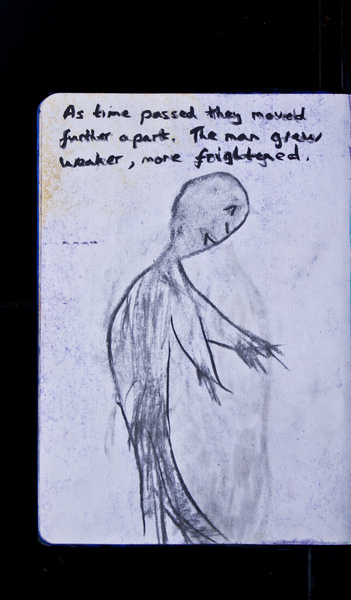 As time passed they moved
further apart. The man grew
weaker, more frightened.